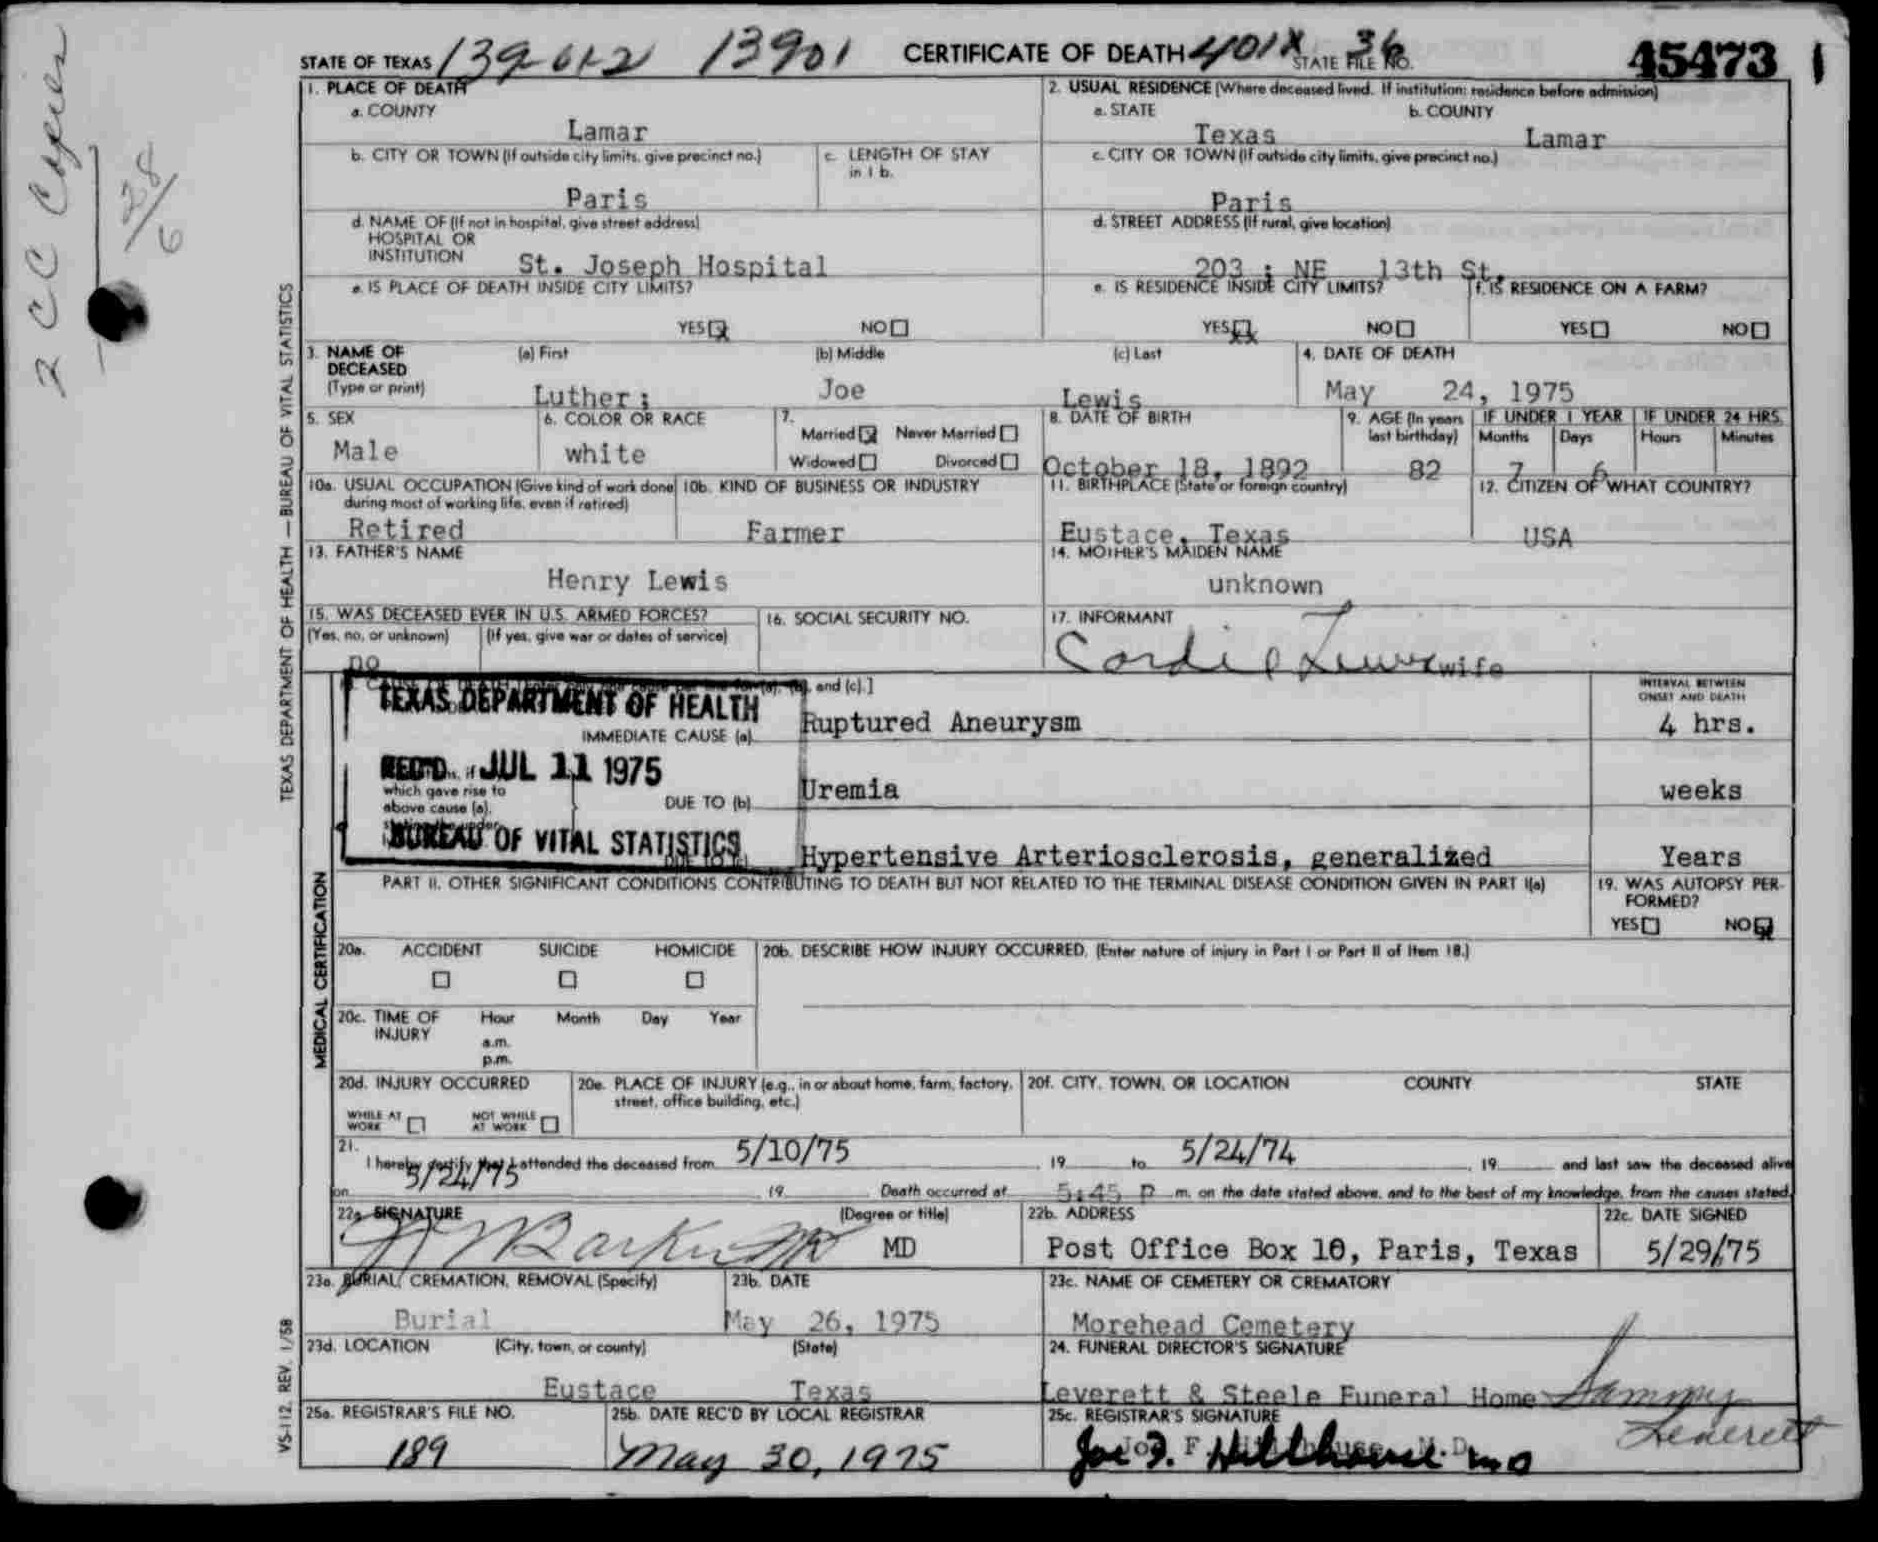 STATE OF TEXAS 139-612 13901 CERTIFICATE OF DEATH 401X STATE FILE NO. 36 45473 1
1. PLACE OF DEATH
a. COUNTY
Lamar
b. CITY OR TOWN (If outside city limits, give precinct no.)
Paris
c. LENGTH OF STAY in 1 b.
d. NAME OF (If not in hospital, give street address)
HOSPITAL OR
INSTITUTION St. Joseph Hospital
e. IS PLACE OF DEATH INSIDE CITY LIMITS?
YES NO
2. USUAL RESIDENCE (Where deceased lived. If institution: residence before admission)
a. STATE b. COUNTY
Texas Lamar
c. CITY OR TOWN (If outside city limits, give precinct no.)
Paris
d. STREET ADDRESS (If rural, give location)
203 ; NE 13th St.
e. IS RESIDENCE INSIDE CITY LIMITS? f. IS RESIDENCE ON A FARM?
YES NO YES NO
3. NAME OF DECEASED (Type or print)
(a) First (b) Middle (c) Last
Luther ; Joe Lewis
4. DATE OF DEATH
May 24, 1975
5. SEX
Male
6. COLOR OR RACE
white
7.
Married Never Married
Widowed Divorced
8. DATE OF BIRTH
October 18, 1892
9. AGE (In years last birthday)
82
IF UNDER 1 YEAR IF UNDER 24 HRS.
Months Days Hours Minutes
7 6
10a. USUAL OCCUPATION (Give kind of work done during most of working life, even if retired)
Retired
10b. KIND OF BUSINESS OR INDUSTRY
Farmer
11. BIRTHPLACE (State or foreign country)
Eustace, Texas
12. CITIZEN OF WHAT COUNTRY?
USA
13. FATHER'S NAME
Henry Lewis
14. MOTHER'S MAIDEN NAME
unknown
15. WAS DECEASED EVER IN U.S. ARMED FORCES?
(Yes, no, or unknown) (If yes, give war or dates of service)
no
16. SOCIAL SECURITY NO.
17. INFORMANT
Cordie Lewis wife
and (c).]
TEXAS DEPARTMENT OF HEALTH
REC'D JUL 11 1975
BUREAU OF VITAL STATISTICS
IMMEDIATE CAUSE (a) Ruptured Aneurysm
which gave rise to
above cause (a),
DUE TO (b) Uremia
Hypertensive Arteriosclerosis, generalized
INTERVAL BETWEEN ONSET AND DEATH
4 hrs.
weeks
Years
PART II. OTHER SIGNIFICANT CONDITIONS CONTRIBUTING TO DEATH BUT NOT RELATED TO THE TERMINAL DISEASE CONDITION GIVEN IN PART I(a)
19. WAS AUTOPSY PERFORMED?
YES NO
20a. ACCIDENT SUICIDE HOMICIDE
20b. DESCRIBE HOW INJURY OCCURRED. (Enter nature of injury in Part I or Part II of Item 18.)
20c. TIME OF INJURY Hour Month Day Year
a.m.
p.m.
20d. INJURY OCCURRED
WHILE AT WORK NOT WHILE AT WORK
20e. PLACE OF INJURY (e.g., in or about home, farm, factory, street, office building, etc.)
20f. CITY, TOWN, OR LOCATION COUNTY STATE
21.
I hereby certify that I attended the deceased from 5/10/75, 19 to 5/24/74, 19 and last saw the deceased alive
on 5/24/75 19 Death occurred at 5:45 P m. on the date stated above, and to the best of my knowledge, from the causes stated.
22a. SIGNATURE (Degree or title)
MD
22b. ADDRESS
Post Office Box 10, Paris, Texas
22c. DATE SIGNED
5/29/75
23a. BURIAL, CREMATION, REMOVAL (Specify)
Burial
23b. DATE
May 26, 1975
23c. NAME OF CEMETERY OR CREMATORY
Morehead Cemetery
23d. LOCATION (City, town, or county) (State)
Eustace Texas
24. FUNERAL DIRECTOR'S SIGNATURE
Leverett & Steele Funeral Home Sammy Leverett
25a. REGISTRAR'S FILE NO.
189
25b. DATE REC'D BY LOCAL REGISTRAR
May 30, 1975
25c. REGISTRAR'S SIGNATURE
Joe F. Hillhouse MD
TEXAS DEPARTMENT OF HEALTH — BUREAU OF VITAL STATISTICS
MEDICAL CERTIFICATION
VS-112. REV. 1/58